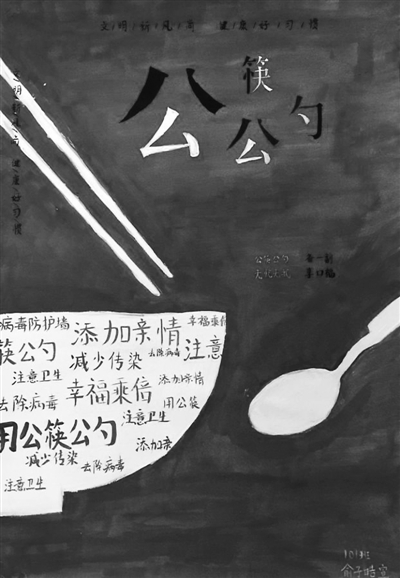 文/明/新/风/尚 健/康/好/习/惯
公筷
公勺
文/明/新/风/尚 健/康/好/习/惯
公筷公勺
病毒防护墙 添加亲情 幸福乘倍
筷公勺 减少传染 去除病毒 注意
注意卫生 幸福乘倍 添加亲情
去除病毒 注意卫生 用公筷
用公筷公勺 添加亲
减少传染 去除病毒
注意卫生
101班